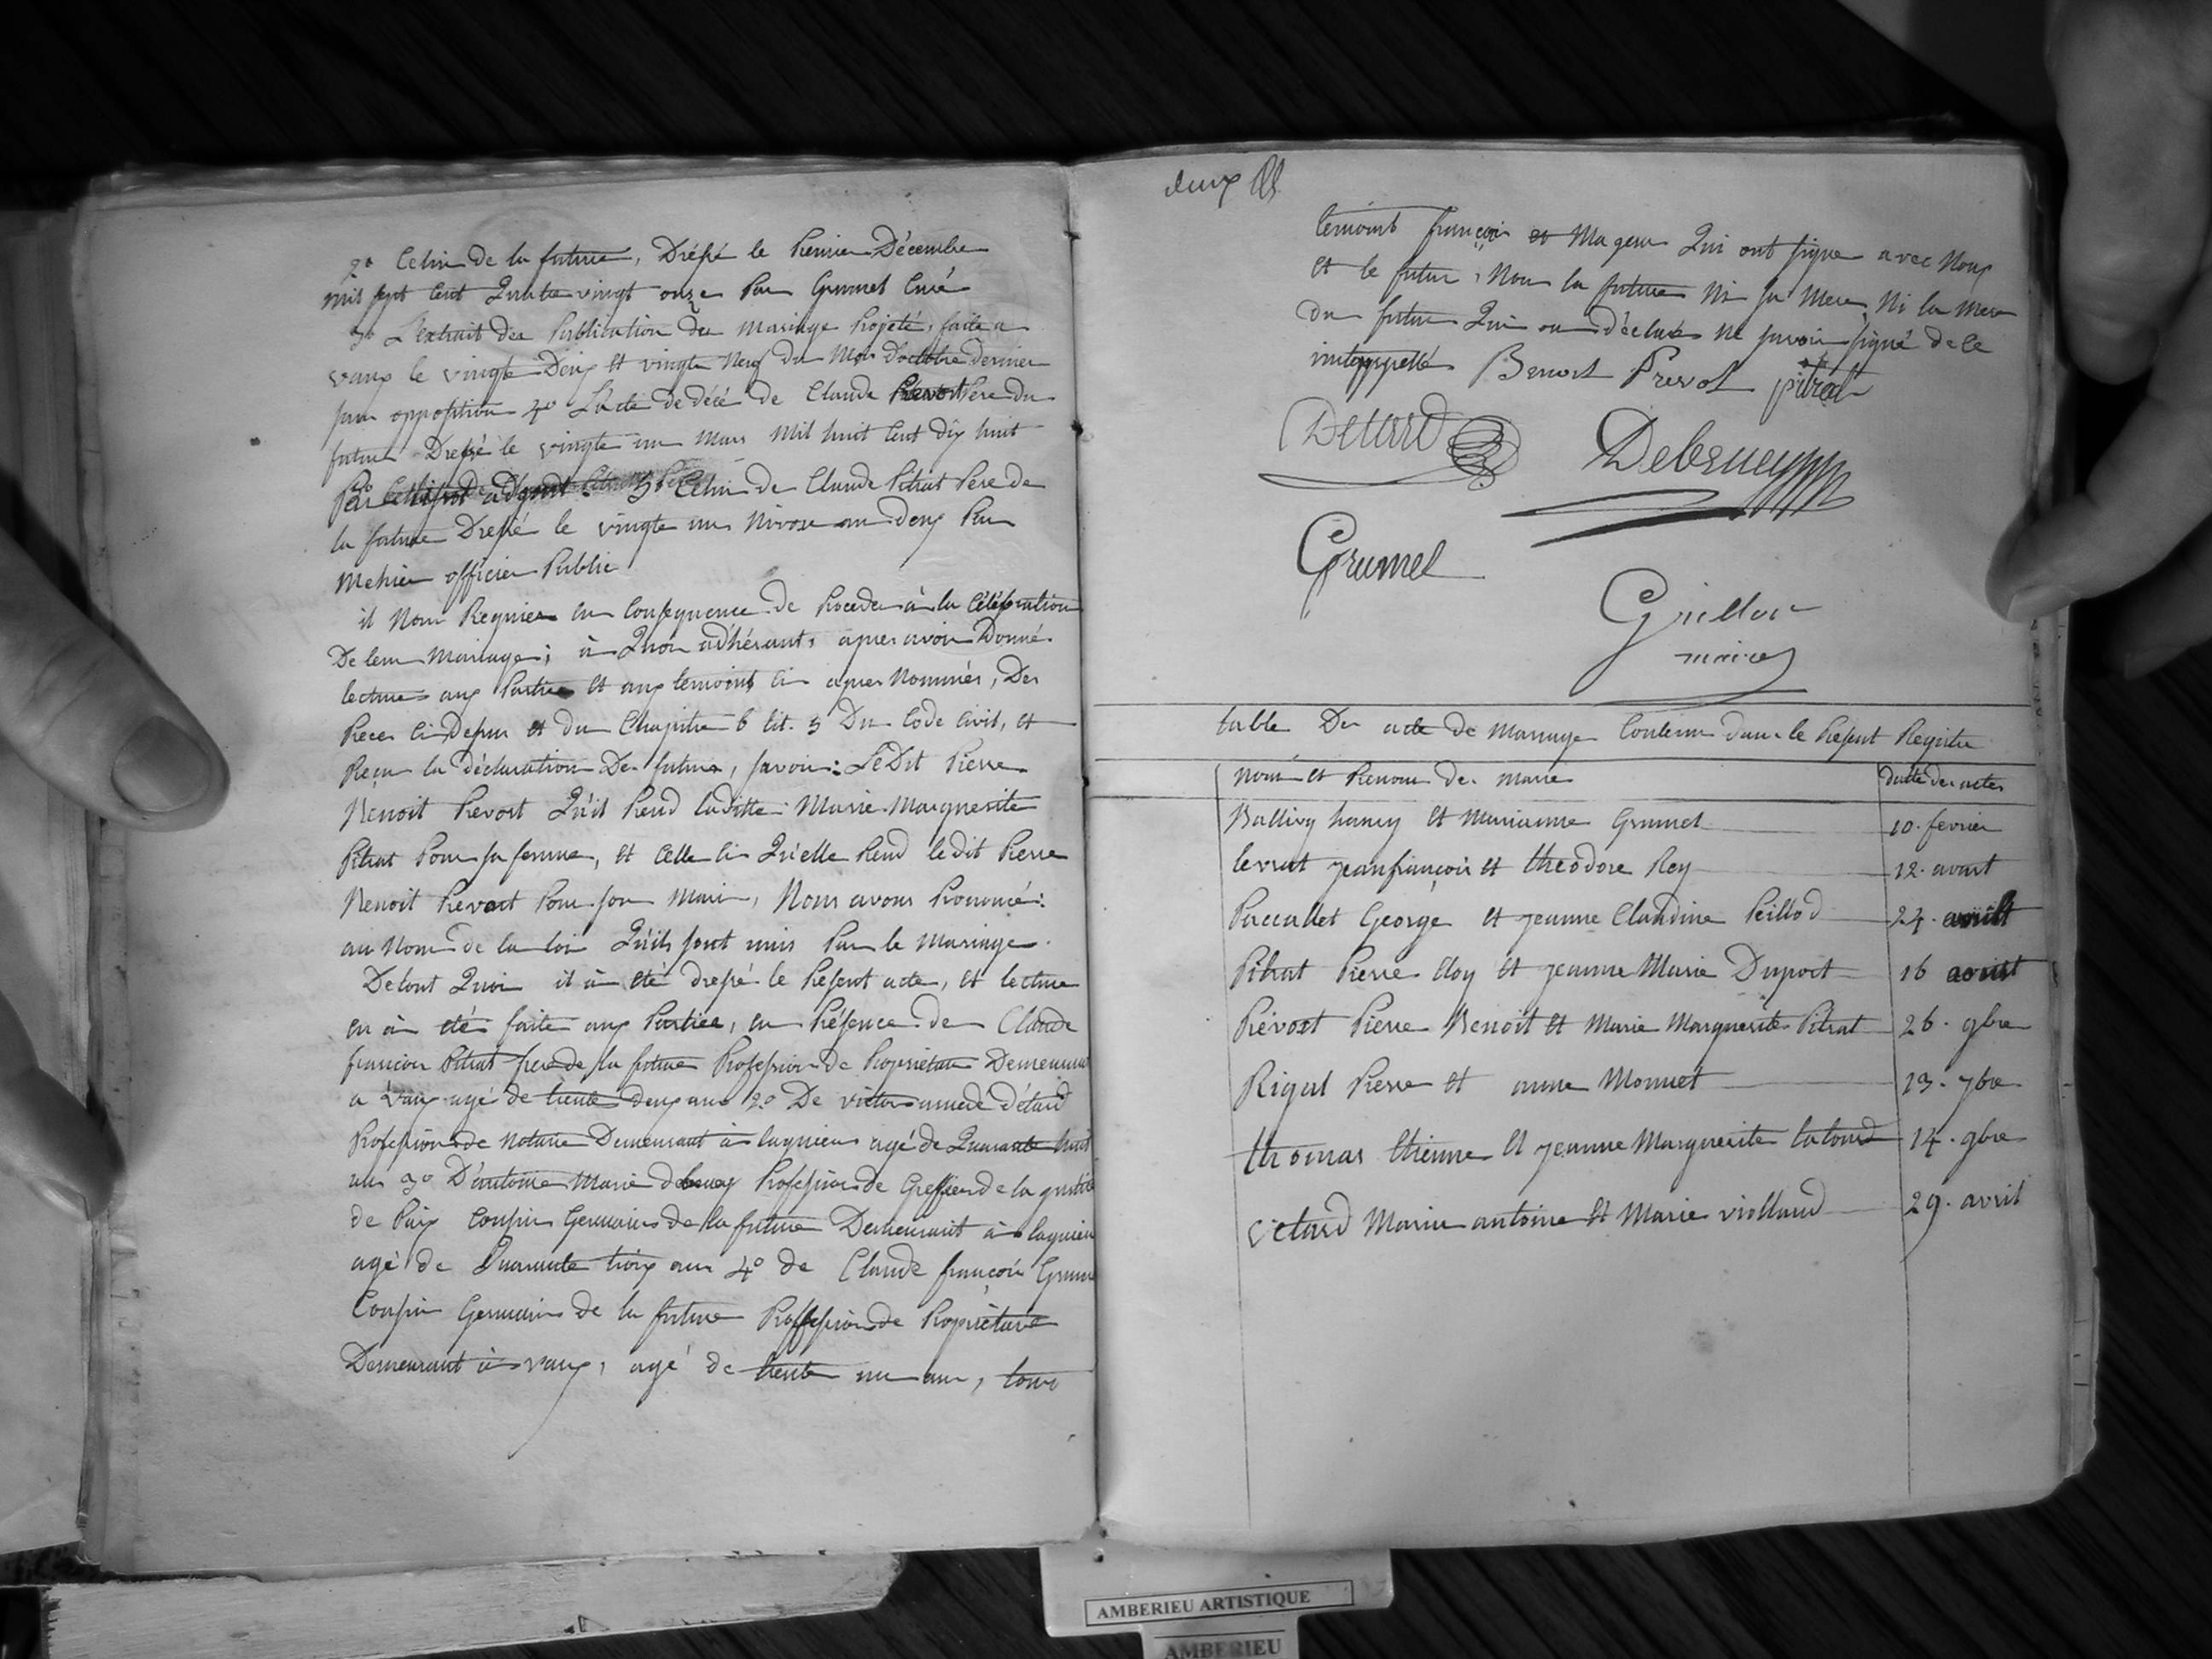 2º Celui de la future, Dressé le Premier Décembre
mil sept Cent Quatre vingt onze Par Grumet Curé
3º L'extrait des Publication du mariage Projeté, faite a
vaux le vingt Deux et vingt Neuf du Mois Doctobre dernier
sans opposition 4º L'acte de décé de Claude Prevost Pere du
futur Dressé le vingte un Mars Mil huit Cent dix huit
Par adjoint 5º Celui de Claude Pitrat Pere de
la future Dressé le vingte un Nivose an deux Par
officier Public
il Nous Requier en Consequence de Proceder à la Célébration
De leur Mariage; à Quoi adhérant, apres avoir Donné
lecture aux Parties et aux temoins ci apres Nommés, Des
Pieces ci Depus et du Chapitre 6 tit. 5 Du Code Civil, et
Reçu la déclaration Des futurs, savoir: LeDit Pierre
Benoit Prevost Qu'il Prend laditte Marie Marguerite
Pitrat Pour sa femme, et Celle Ci Qu'elle Prend ledit Pierre
Benoit Prevost Pour son Mari, Nous avons Prononcé:
au Nom de la loi Qu'ils sont unis Par le Mariage.
Detout Quoi il à été dressé le Présent acte, et lecture
en à eté faite aux Parties, en Présence de Claude
françois Pitrat frere de la future Profession de Propriétaire Demeurant
a Vaux agé de trente deux ans 2º De victor amedé Détard
Profession de Notaire Demeurant à lagnieu agé de Quarante huit
ans 3º D'antoine Marie debeney Profession de Greffier de la justice
de Paix Cousin Germain de la future Demeurant à lagnieu
agé de Quarante trois ans 4º de Claude françois Grumel
Cousin Germain de la future Proffession de Propriétaire
Demeurant à vaux, agé de trente un ans, tous
deux
temoins françois et Majeur Qui ont signe avec Nous
et le futur, Non la future Ni sa Mere, Ni la Mere
du futur Qui ont déclaré Ne savoir signé de Ce
intéppellé Benoit Prevot pitrat
Detard Debeney
Grumel
Guillot
maire
table Des acte de Mariage Contenu dans le Présent Registre
Nom et Prenom des marié dattes des actes
Ballivy hancy et Marianne Grumet 10. fevrier
levrat jeanfrançois et théodore Rey 12. aoust
Paccallet George et jeanne Claudine Peillod 24. avrill
Pitrat Pierre Eloy et jeanne Marie Duport 16 aoust
Prévost Pierre Benoit et Marie Marguerite Pitrat 26. 9bre
Rigut Pierre et anne Monnet 23. 7bre
thomas Etienne et jeanne Marguerite tatoud 14. 9bre
vétard Marin antoine et Marie viollaud 29. avril
AMBERIEU ARTISTIQUE
AMBERIEU